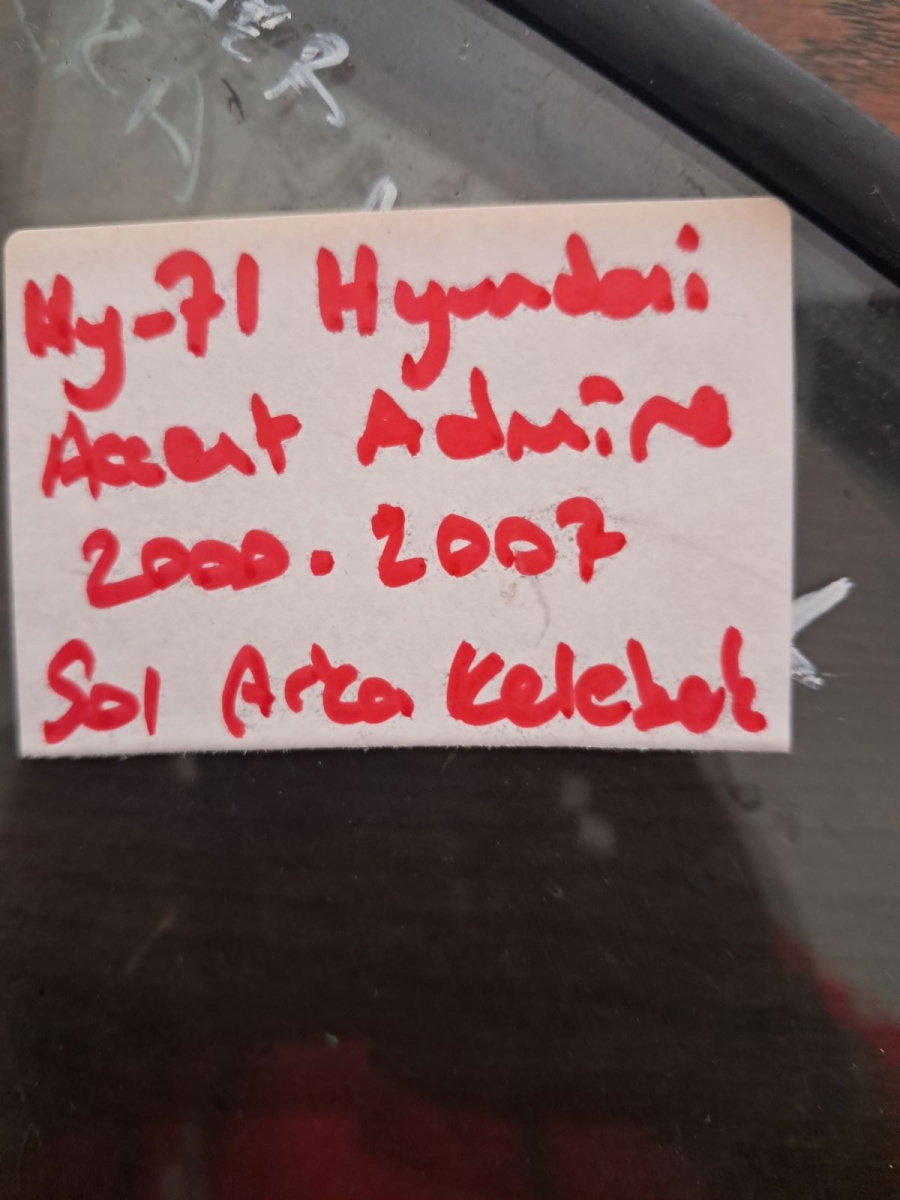 Hy-71 Hyundai
Accent Admire
2000-2007
Sol Arka Kelebek